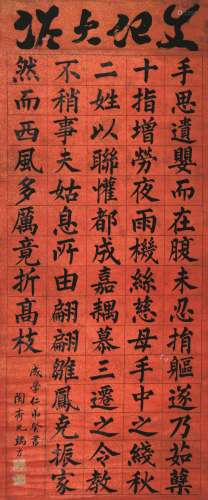 手思遺嬰而在腹未忍捐軀遂乃茹蘖
十指增勞夜雨機絲慈母手中之綫秋
二姓以聯懽都成嘉耦慕三遷之令教
不稍事夫姑息所由翩翩雛鳳克振家
然而西風多厲竟折高枝
成榮仁
陶齋端方